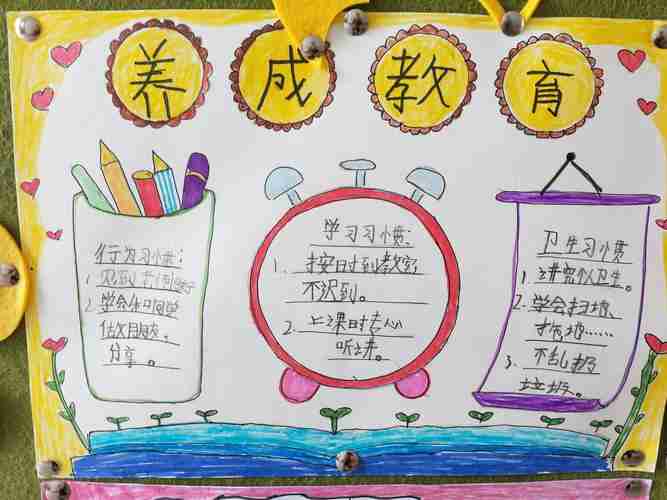 养成教育
行为习惯：
1.见到老师问好
2.学会和同学
做朋友
分享。
学习习惯：
1. 按时到教室
不迟到。
2. 上课时专心
听课。
卫生习惯
1.讲究个人卫生。
2.学会扫地、
拖地……
3. 不乱扔
垃圾。